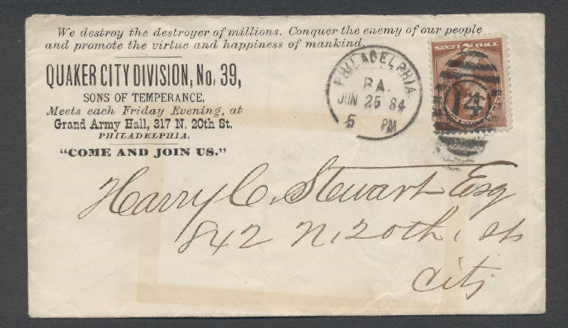 We destroy the destroyer of millions. Conquer the enemy of our people
and promote the virtue and happiness of mankind.
QUAKER CITY DIVISION, No. 39,
SONS OF TEMPERANCE,
Meets each Friday Evening, at
Grand Army Hall, 317 N. 20th St.
PHILADELPHIA.
"COME AND JOIN US."
PHILADELPHIA
PA.
JUN 25 84
5 PM
14
Harry C. Stewart Esq
842 N. 20th, St
City